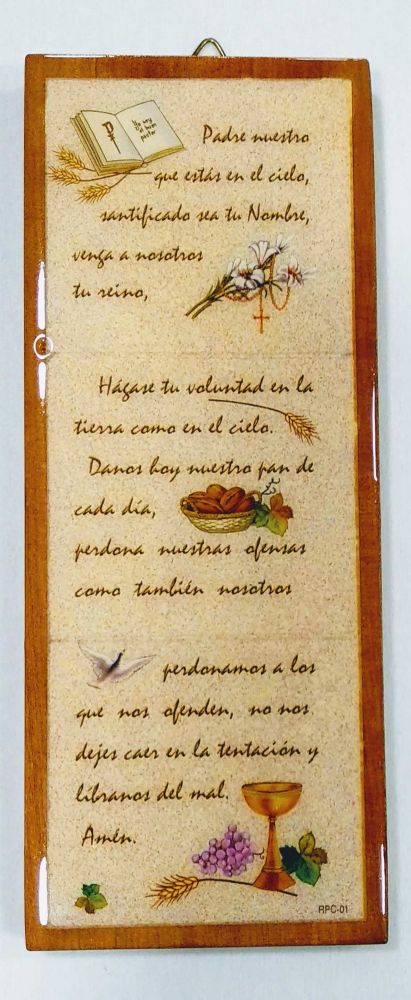 Yo soy
el buen
pastor
Padre nuestro
que estás en el cielo,
santificado sea tu Nombre,
venga a nosotros
tu reino,
Hágase tu voluntad en la
tierra como en el cielo.
Danos hoy nuestro pan de
cada día,
perdona nuestras ofensas
como también nosotros
perdonamos a los
que nos ofenden, no nos
dejes caer en la tentación y
líbranos del mal.
Amén.
RPC-01